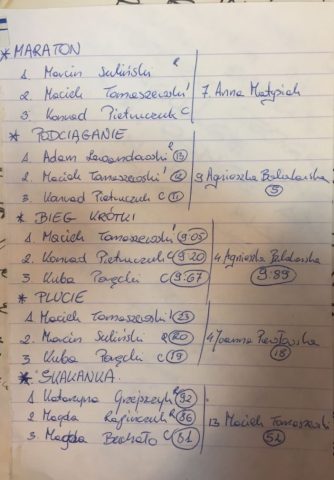 * MARATON
1. Marcin Suliński R
2. Maciek Tomaszewski I
3. Konrad Pietruczuk C
7. Anna Matysiak
* PODCIĄGANIE
1. Adam Lewandowski R 13
2. Maciek Tomaszewski I 12
3. Konrad Pietruczuk C 11
9 Agnieszka Bałabańska 5
* BIEG KRÓTKI
1. Maciek Tomaszewski I 9:05
2. Konrad Pietruczuk 9:20
3. Kuba Paręcki C 9:67
4. Agnieszka 9:89
* PLUCIE
1. Maciek Tomaszewski 23
2. Marcin Suliński R 20
3. Kuba Paręcki C 19
4 Joanna 18
* SKAKANKA
1. Katarzyna Grzejszczyk R 92
2 Magda R 86
3 Magda C 81
13 Maciek Tomaszewski 52